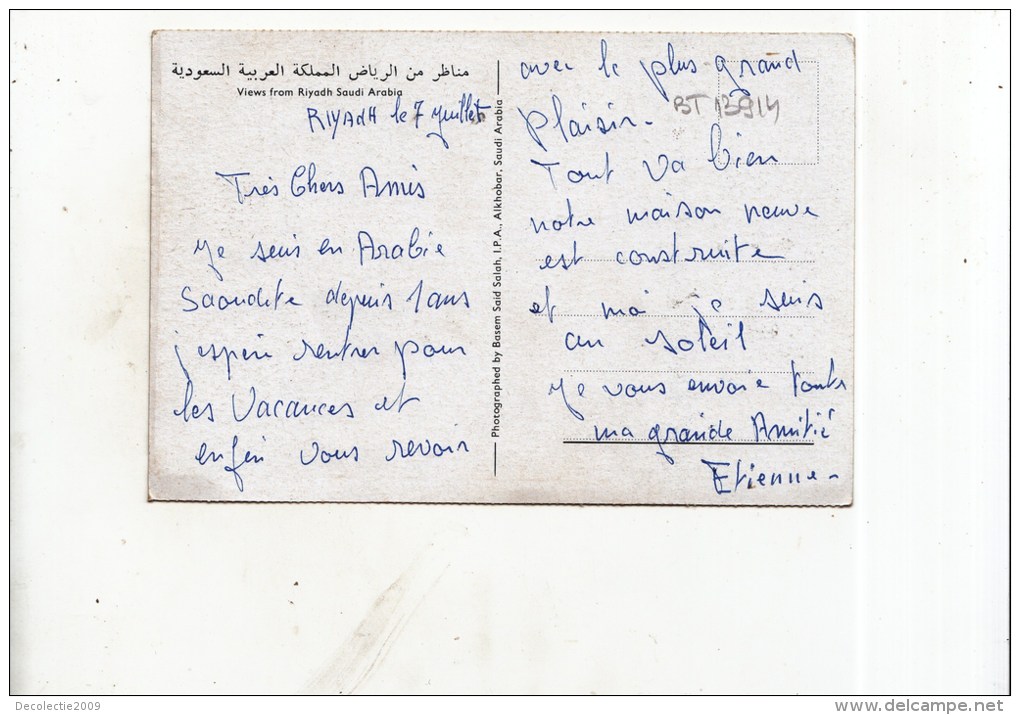 مناظر من الرياض المملكة العربية السعودية
Views from Riyadh Saudi Arabia
RIYADH le 7 Juillet
Très Chers Amis
Je suis en Arabie
Saoudite depuis 1 ans
j'espère rentrer pour
les Vacances et
enfin vous revoir
Photographed by Basem Said Salah, I.P.A., Alkhobar, Saudi Arabia
avec le plus grand
BT 13914
plaisir.
Tout va bien
notre maison neuve
est construite
et moi je suis
au soleil
Je vous envoie toute
ma grande Amitié
Etienne-
Decolectie2009
www.delcampe.net